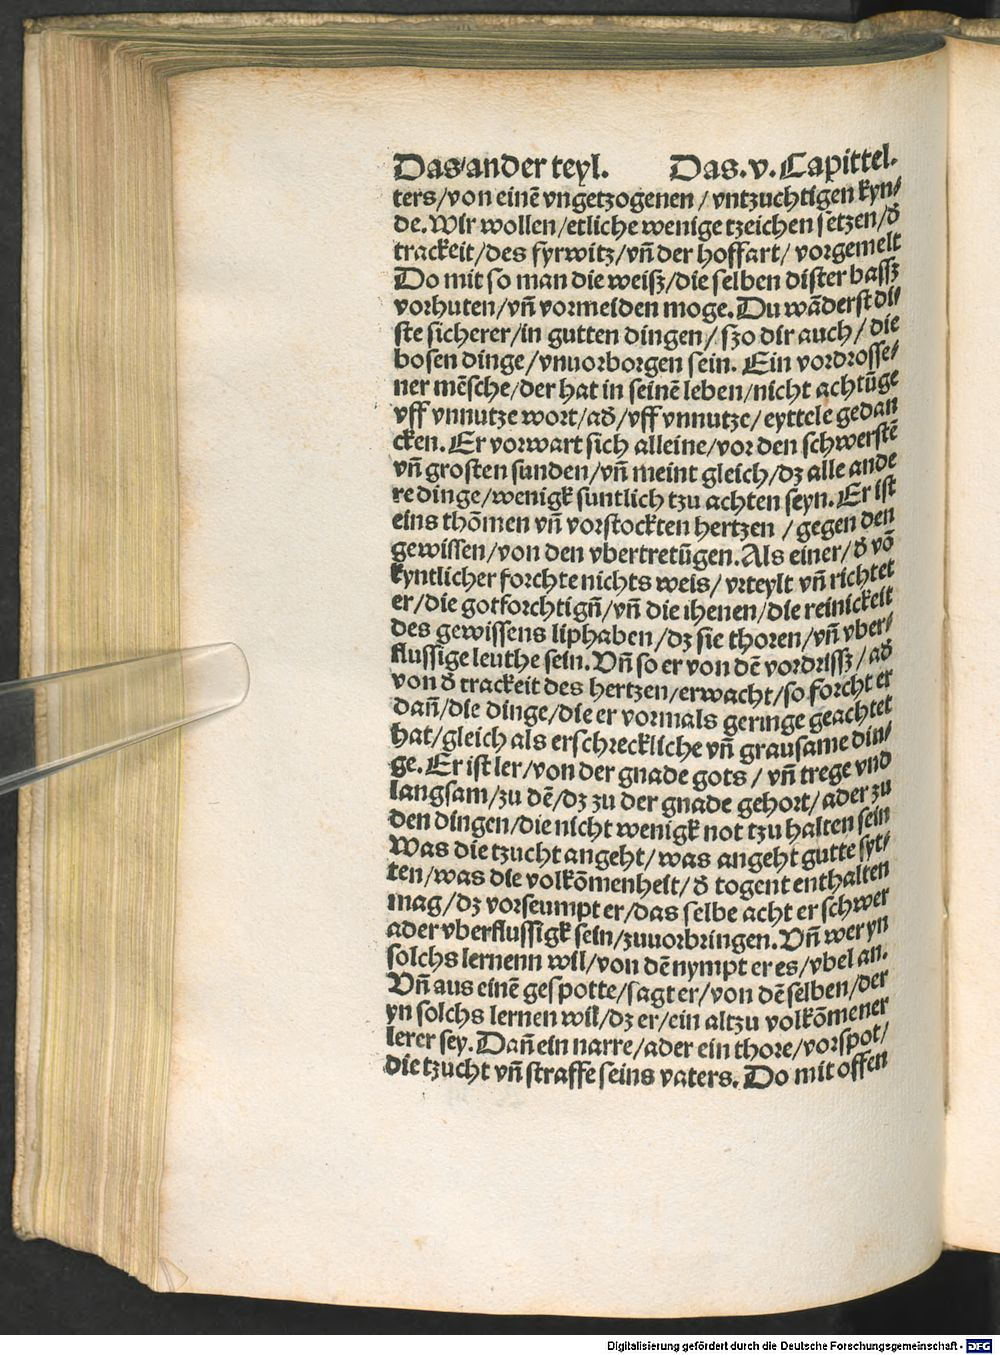 Das ander teyl. Das. v. Capittel.
ters/von einē vngetzogenen/vntzuchtigen kyn⸗
de. Wir wollen/etliche wenige tzeichen setzen/d̄
trackeit/des fyrwitz/vn̄ der hoffart/vorgemelt
Do mit so man die weiß/die selben dister basß
vorhuten/vn̄ vormeiden moge. Du wāderst di⸗
ste sicherer/in gutten dingen/ßo dir auch/die
bosen dinge/vnuorborgen sein. Ein vordrosse⸗
ner mēsche/der hat in seinē leben/nicht achtūge
vff vnnutze wort/ad̄/vff vnnutze/eyttele gedan
cken. Er vorwart sich alleine/vor den schwerstē
vn̄ grosten sunden/vn̄ meint gleich/dz alle ande
re dinge/wenigk suntlich tzu achten seyn. Er ist
eins thōmen vn̄ vorstockten hertzen/gegen den
gewissen/von den vbertretūgen. Als einer/d̄ vō
kyntlicher forchte nichts weis/vrteylt vn̄ richtet
er/die gotforchtign̄/vn̄ die ihenen/die reinickeit
des gewissens liphaben/dz sie thoren/vn̄ vber⸗
flussige leuthe sein. Vn̄ so er von dē vordrisß/ad̄
von d̄ trackeit des hertzen/erwacht/so forcht er
dan̄/die dinge/die er vormals geringe geachtet
hat/gleich als erschreckliche vn̄ grausame din⸗
ge. Er ist ler/von der gnade gots/vn̄ trege vnd
langsam/zu dē/dz zu der gnade gehort/ader zu
den dingen/die nicht wenigk not tzu halten sein
Was die tzucht angeht/was angeht gutte syt⸗
ten/was die volkōmenheit/d̄ togent enthalten
mag/dz vorseumpt er/das selbe acht er schwer
ader vberflussigk sein/zuuorbringen. Vn̄ wer yn
solchs lernenn wil/von dē nympt er es/vbel an.
Vn̄ aus einē gespotte/sagt er/von dē selben/der
yn solchs lernen wil/dz er/ein altzu volkōmener
lerer sey. Dan̄ ein narre/ader ein thore/vorspot/
die tzucht vn̄ straffe seins vaters. Do mit offen
Digitalisierung gefördert durch die Deutsche Forschungsgemeinschaft - DFG